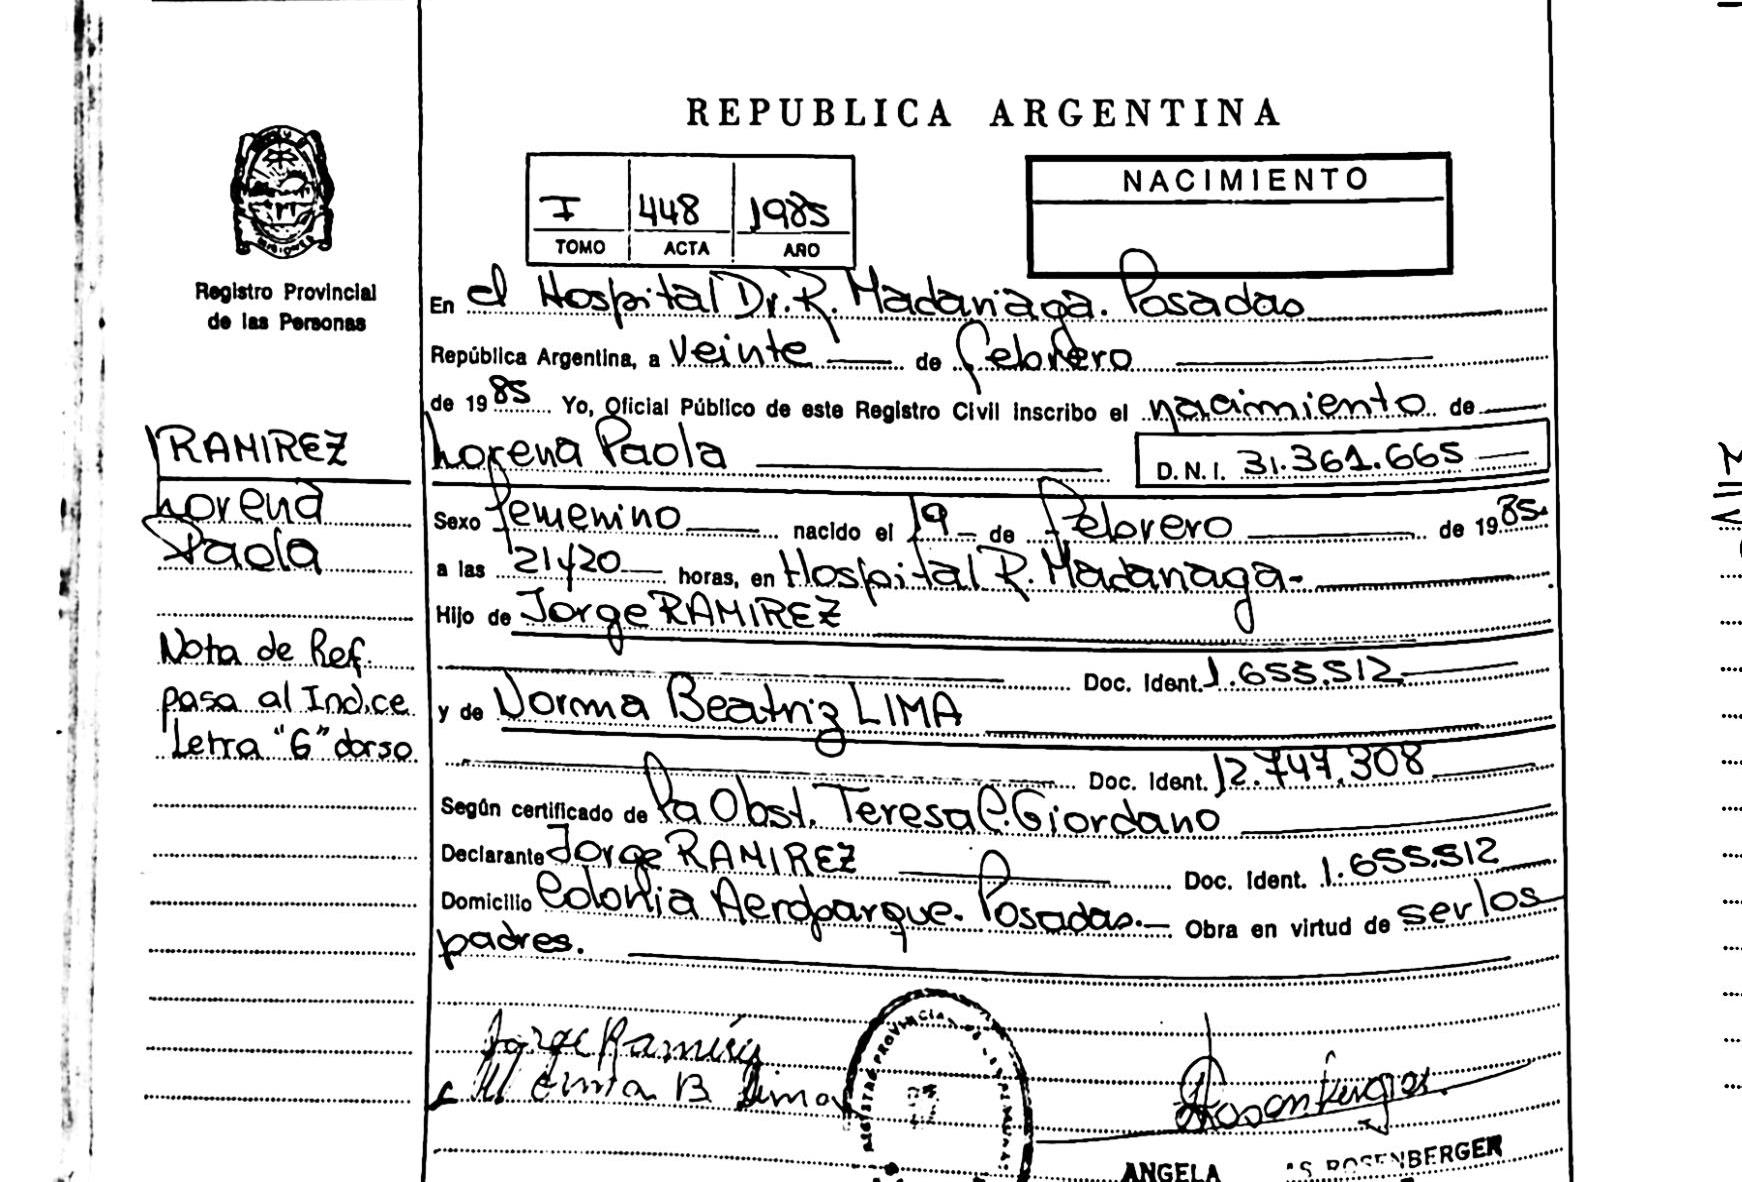 REPUBLICA ARGENTINA
I 448 1985
TOMO ACTA AÑO
NACIMIENTO
MISIONES
Registro Provincial
de las Personas
RAMIREZ
Lorena
Paola
Nota de Ref.
pasa al Indice
Letra "G" dorso
En el Hospital Dr. R. Madariaga. Posadas
República Argentina, a veinte de febrero
de 1985 Yo, Oficial Público de este Registro Civil inscribo el nacimiento de
Lorena Paola D.N.I. 31.361.665
Sexo femenino nacido el 19 de febrero de 1985.
a las 21y20 horas, en Hospital R. Madariaga.
Hijo de Jorge RAMIREZ
Doc. Ident. 1.655.512
y de Norma Beatriz LIMA
Doc. Ident. 12.747.308
Según certificado de la Obst. Teresa C. Giordano
Declarante Jorge RAMIREZ Doc. Ident. 1.655.512
Domicilio Colonia Aeroparque. Posadas. Obra en virtud de ser los
padres.
Jorge Ramirez
B Lima
REGISTRO PROVINCIAL DE LAS
Rosenberger
ANGELA ROSENBERGER